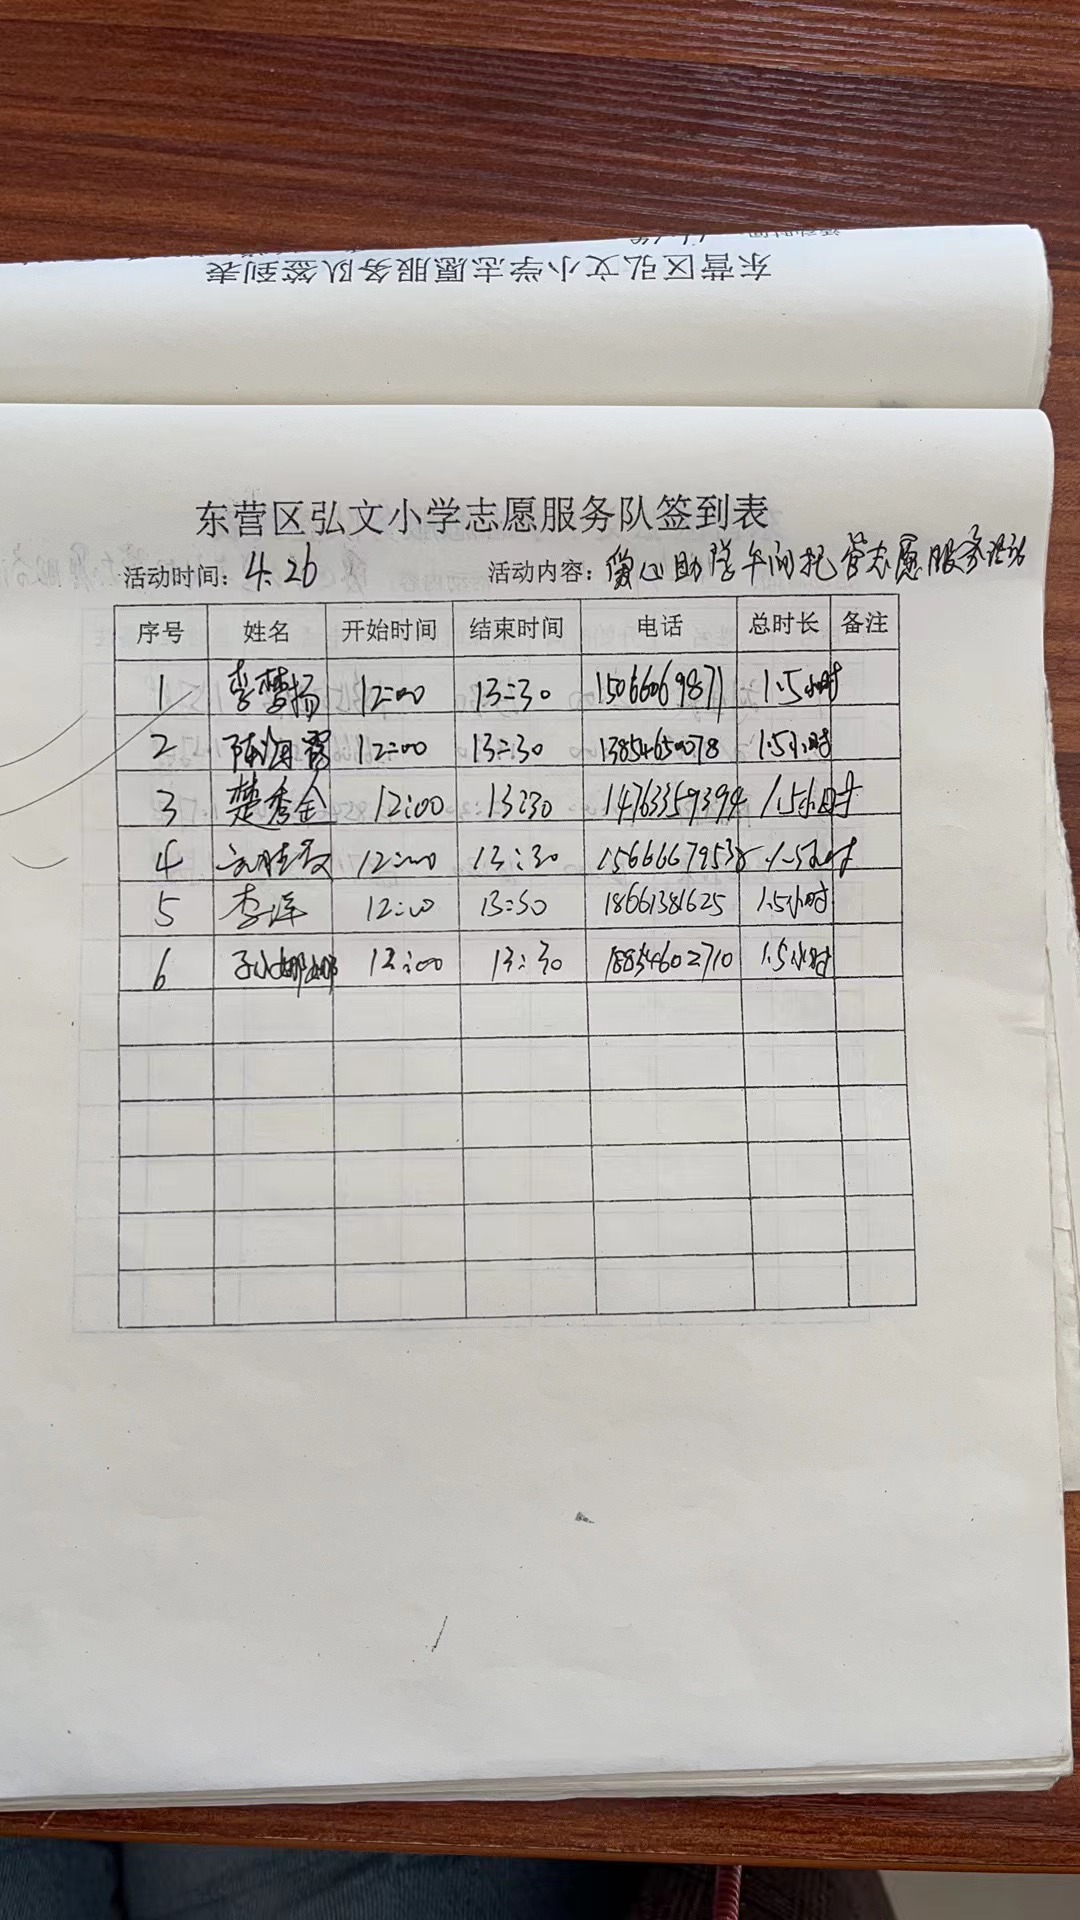 东营区弘文小学志愿服务队签到表
东营区弘文小学志愿服务队签到表
活动时间：4.26 活动内容：爱心助学午间托管志愿服务活动
序号 姓名 开始时间 结束时间 电话 总时长 备注
1 李梦扬 12:00 13:30 15066069871 1.5小时
2 陈海霞 12:00 13:30 13854650078 1.5小时
3 楚秀金 12:00 13:30 14763359394 1.5小时
4 12:00 13:30 15666679538 1.5小时
5 李洋 12:00 13:30 18661381625 1.5小时
6 孙娜娜 12:00 13:30 18854602710 1.5小时